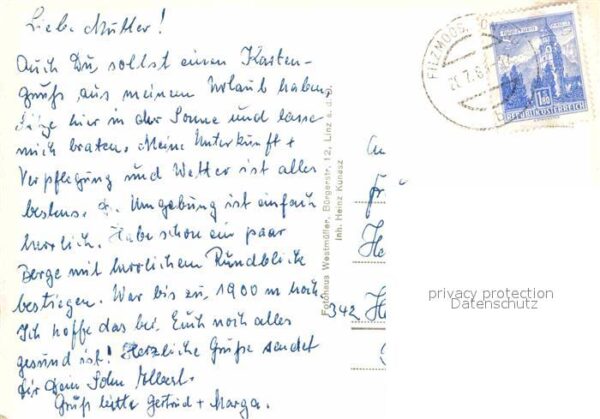 Liebe Mutter!
Auch Du sollst einen Karten-
gruß aus meinem Urlaub haben.
Sitze hier in der Sonne und lasse
mich braten. Meine Unterkunft +
Verpflegung und Wetter ist alles
bestens. Umgebung ist einfach
herrlich. Habe schon ein paar
Berge mit herrlichem Rundblicke
bestiegen. War bis zu 1900 m hoch.
Ich hoffe das bei Euch noch alles
gesund ist! Herzliche Grüße sendet
Dir Dein Sohn
Gruß bitte Gertrud + Marga.
Fotohaus Westmüller, Bürgerstr. 12, Linz a. d. D.
Inh. Heinz Kunesz
FILZMOOS
REPUBLIK ÖSTERREICH
342
privacy protection
Datenschutz